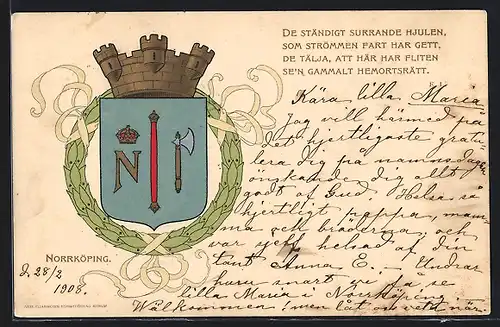 De ständigt surrande hjulen,
som strömmen fart har gett,
de tälja, att här har fliten
se'n gammalt hemortsrätt.
Kära lilla Maria
Jag vill härmed på
det hjertligaste gratu-
lera dig på namnsdagen
önskande dig allt
godt af Gud. Helsa så
hjertligt pappa, mam-
ma och bröderna, och
var sjelf helsad af din
tant Anna E. Undrar
huru snart vi få se
lilla Maria i Norrköping.
Välkommen! men låt oss veta när.
N
Norrköping.
d. 28/2
1908.